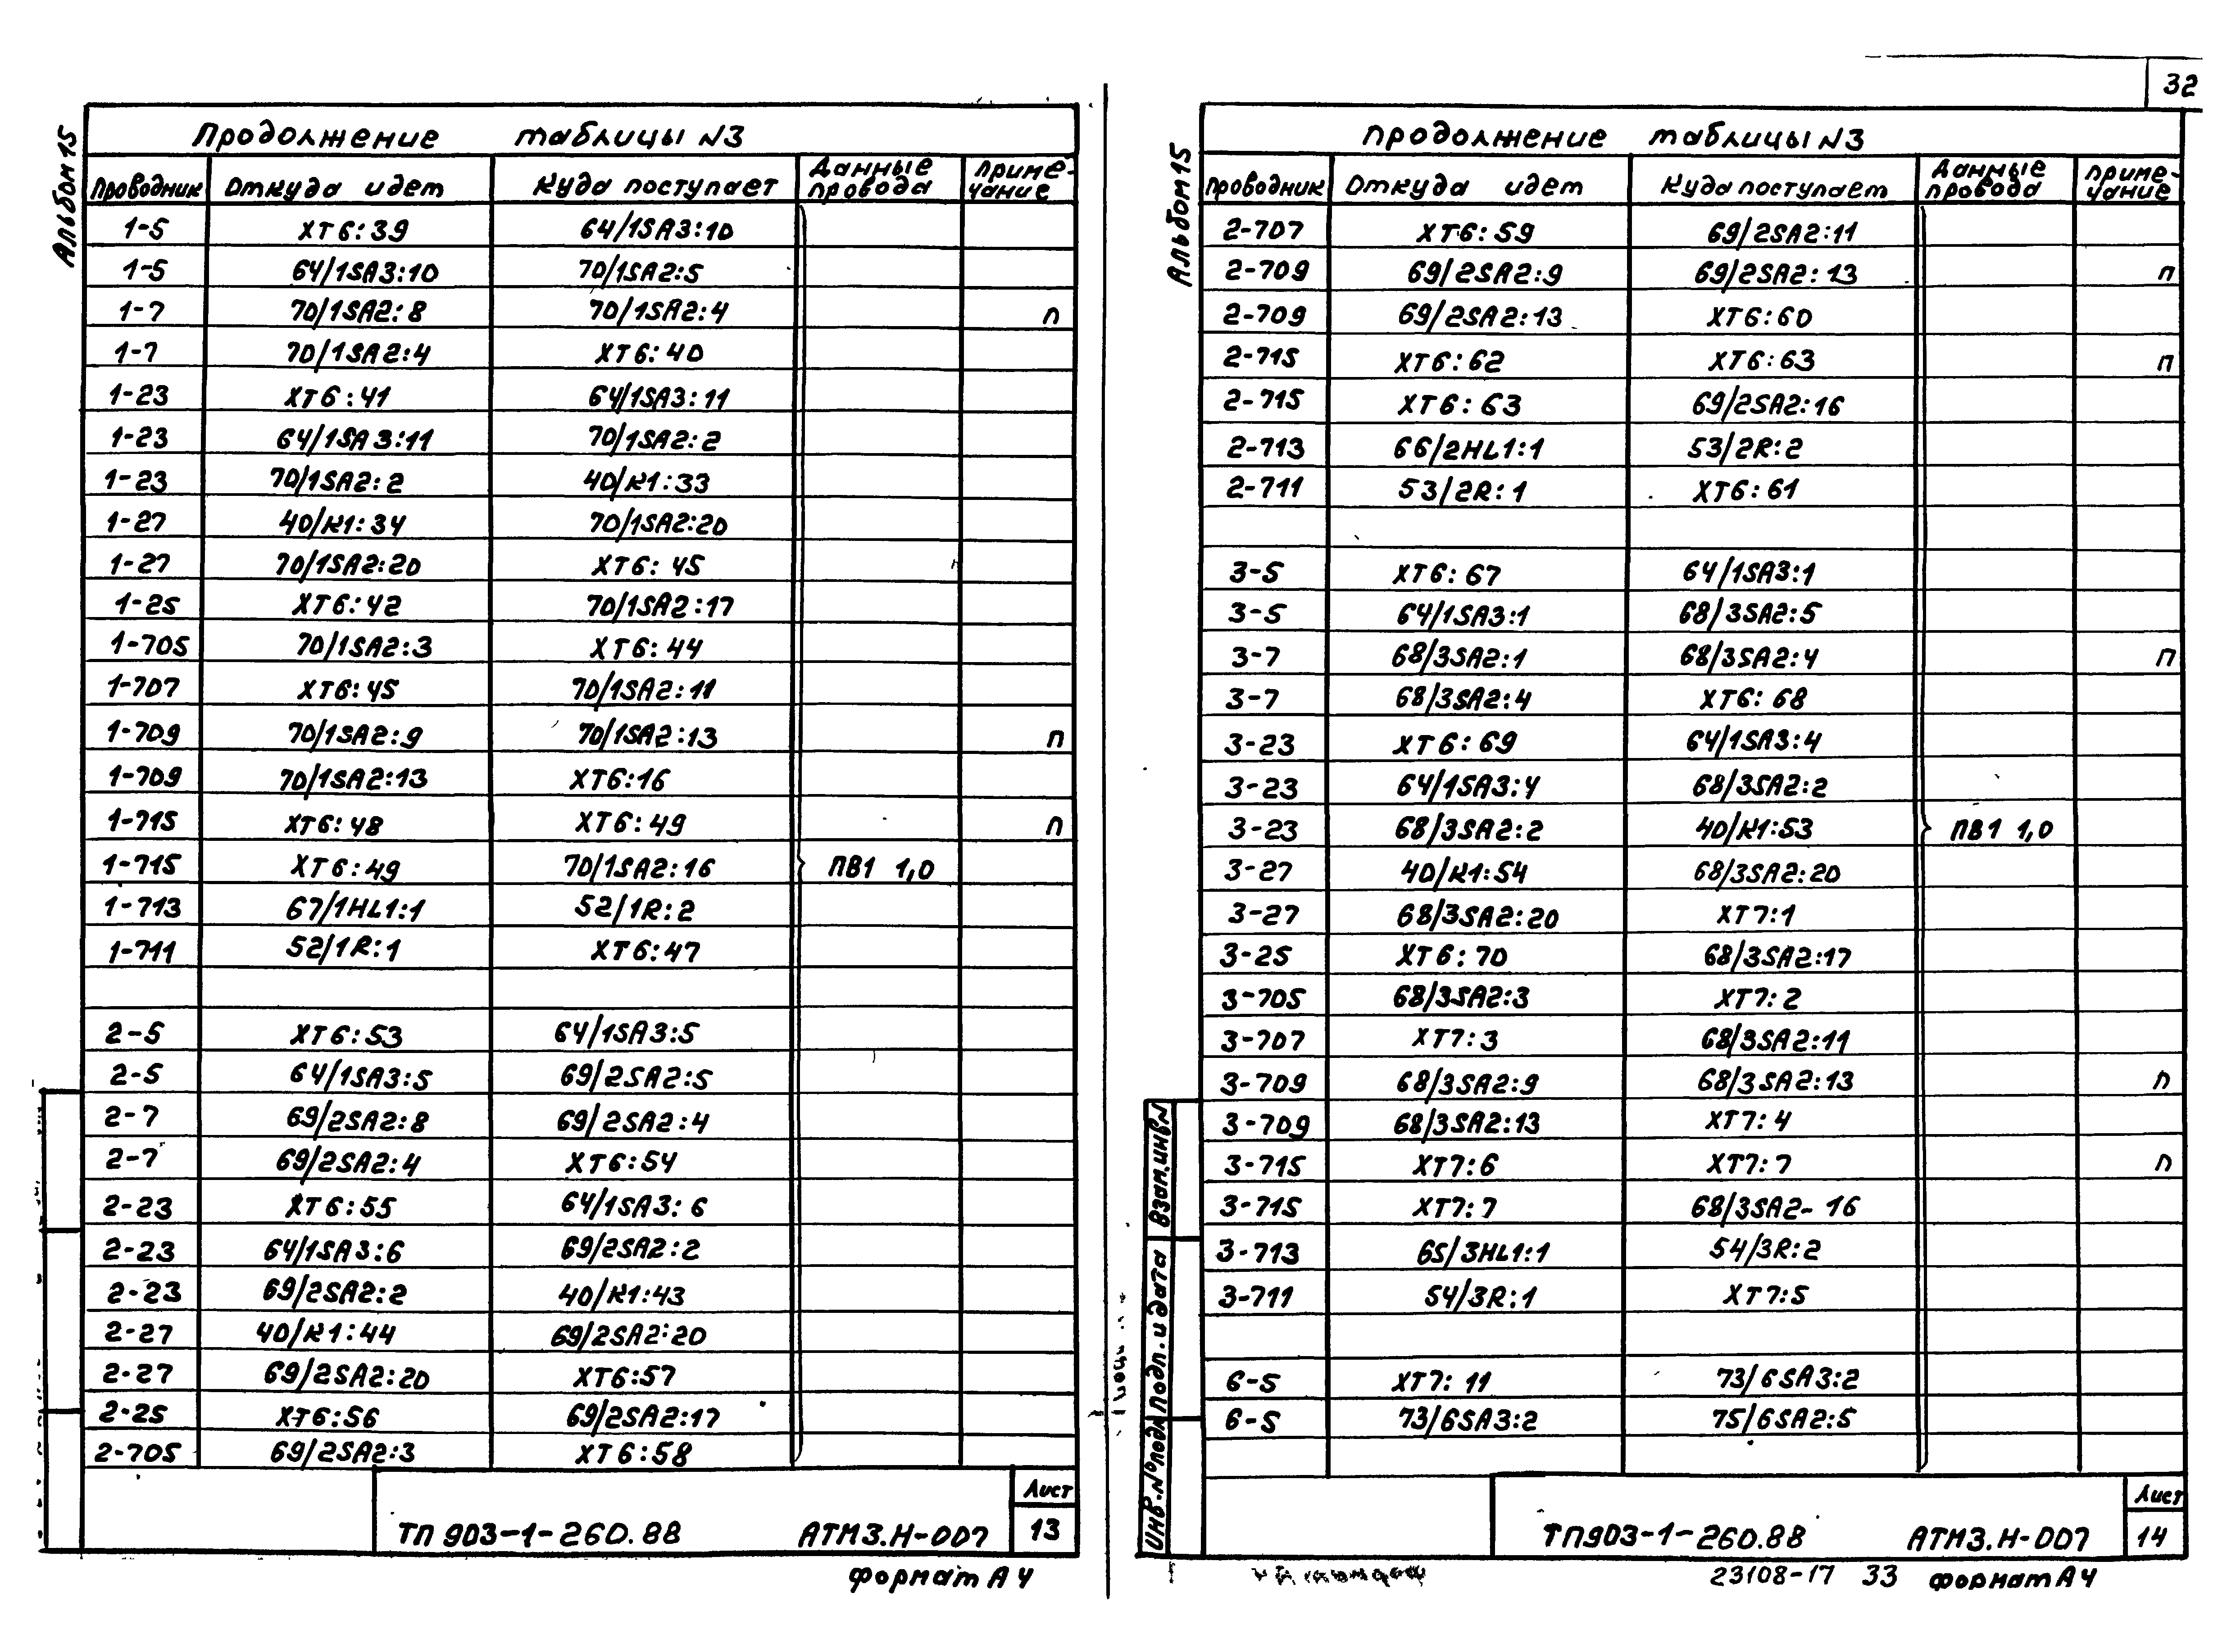 32
Альбом 15
Продолжение таблицы N3
Проводник Откуда идет Куда поступает Данные провода Примечание
1-5 XT6:39 64/1SA3:10
1-5 64/1SA3:10 70/1SA2:5
1-7 70/1SA2:8 70/1SA2:4 п
1-7 70/1SA2:4 XT6:40
1-23 XT6:41 64/1SA3:11
1-23 64/1SA3:11 70/1SA2:2
1-23 70/1SA2:2 40/K1:33
1-27 40/K1:34 70/1SA2:20
1-27 70/1SA2:20 XT6:45
1-25 XT6:42 70/1SA2:17
1-705 70/1SA2:3 XT6:44
1-707 XT6:45 70/1SA2:11
1-709 70/1SA2:9 70/1SA2:13 п
1-709 70/1SA2:13 XT6:16
1-715 XT6:48 XT6:49 п
1-715 XT6:49 70/1SA2:16 ПВ1 1,0
1-713 67/1HL1:1 52/1R:2
1-711 52/1R:1 XT6:47
2-5 XT6:53 64/1SA3:5
2-5 64/1SA3:5 69/2SA2:5
2-7 69/2SA2:8 69/2SA2:4
2-7 69/2SA2:4 XT6:54
2-23 XT6:55 64/1SA3:6
2-23 64/1SA3:6 69/2SA2:2
2-23 69/2SA2:2 40/K1:43
2-27 40/K1:44 69/2SA2:20
2-27 69/2SA2:20 XT6:57
2-25 XT6:56 69/2SA2:17
2-705 69/2SA2:3 XT6:58
ТП 903-1-260.88 АТМ3.Н-007
Лист
13
Формат А4
Альбом 15
Продолжение таблицы N3
Проводник Откуда идет Куда поступает Данные провода Примечание
2-707 XT6:59 69/2SA2:11
2-709 69/2SA2:9 69/2SA2:13 п
2-709 69/2SA2:13 XT6:60
2-715 XT6:62 XT6:63 п
2-715 XT6:63 69/2SA2:16
2-713 66/2HL1:1 53/2R:2
2-711 53/2R:1 XT6:61
3-5 XT6:67 64/1SA3:1
3-5 64/1SA3:1 68/3SA2:5
3-7 68/3SA2:1 68/3SA2:4 п
3-7 68/3SA2:4 XT6:68
3-23 XT6:69 64/1SA3:4
3-23 64/1SA3:4 68/3SA2:2
3-23 68/3SA2:2 40/K1:53 ПВ1 1,0
3-27 40/K1:54 68/3SA2:20
3-27 68/3SA2:20 XT7:1
3-25 XT6:70 68/3SA2:17
3-705 68/3SA2:3 XT7:2
3-707 XT7:3 68/3SA2:11
3-709 68/3SA2:9 68/3SA2:13 п
3-709 68/3SA2:13 XT7:4
3-715 XT7:6 XT7:7 п
3-715 XT7:7 68/3SA2-16
3-713 65/3HL1:1 54/3R:2
3-711 54/3R:1 XT7:5
6-5 XT7:11 73/6SA3:2
6-5 73/6SA3:2 75/6SA2:5
Взам.инв.N
Подп. и дата
Инв.№подл
ТП903-1-260.88 АТМ3.Н-007
Лист
14
23108-17 33 Формат А4